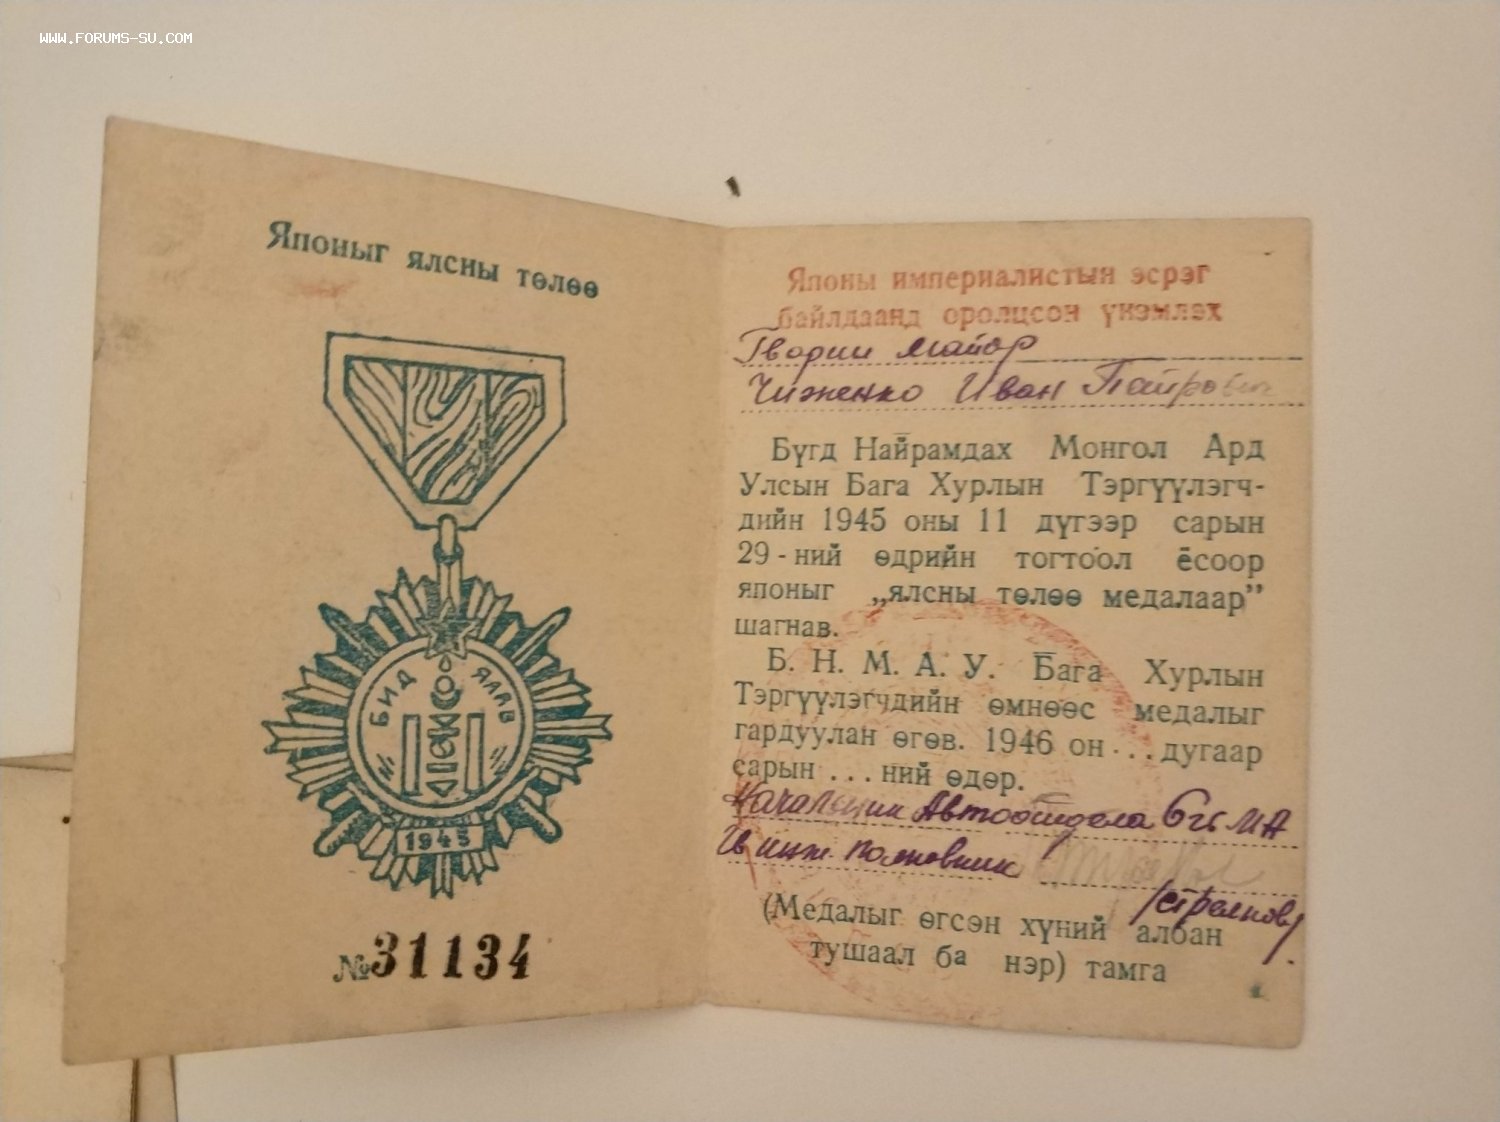 WWW.FORUMS-SU.COM
Японыг ялсны төлөө
БИД ЯЛАВ
1945
№31134
Японы империалистын эсрэг
байлдаанд оролцсон үнэмлэх
Гвардии майор
Чиженко Иван Петрович
Бүгд Найрамдах Монгол Ард
Улсын Бага Хурлын Тэргүүлэгч-
дийн 1945 оны 11 дүгээр сарын
29-ний өдрийн тогтоол ёсоор
японыг „ялсны төлөө медалаар”
шагнав.
Б. Н. М. А. У. Бага Хурлын
Тэргүүлэгчдийн өмнөөс медалыг
гардуулан өгөв. 1946 он ... дугаар
сарын ... ний өдөр.
Начальник Автоотдела 6 гв МА
Гв инж. полковник
/Стрелков/
(Медалыг өгсөн хүний албан
тушаал ба нэр) тамга